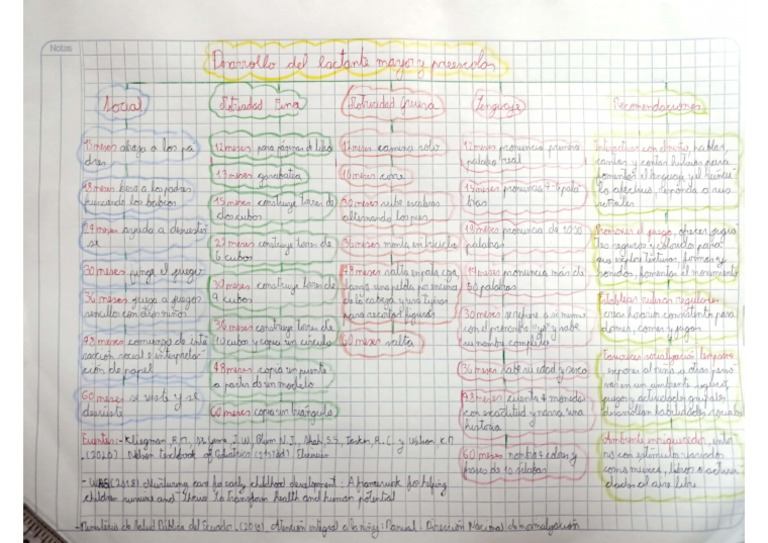 Notas
Desarrollo del lactante mayor y preescolar
Social
15 meses abraza a los pa
dres
18 meses besa a los padres
frunciendo los
24 meses ayuda a desvestir
se
30 meses el juego
36 meses juega a juegos
sencillo con otros niños
48 meses comienzo de inte
racción social e interpreta
ción de papel
60 meses se viste y se
desviste
Motricidad Fina
12 meses pasa páginas de libro
13 meses garabatea
15 meses construye torre de
dos cubos
construye torres de
6 cubos
30 meses construye torre de
9 cubos
36 meses construye torre de
10 cubos y copia un círculo
48 meses copia un puente
a partir de un modelo
60 meses copia un triángulo
Motricidad Gruesa
12 meses camina solo
16 meses corre
sube escaleras
alternando los pies
36 meses monta en triciclo
48 meses salta en pata coja
lanza una pelota por encima
de la cabeza y usa tijeras
para recortar figuras
60 meses salta
Lenguaje
12 meses pronuncia primera
palabra real
15 meses pronuncia 4-6 pala
bras
18 meses pronuncia de 10-50
palabras
24 meses pronuncia más de
50 palabras
30 meses se refiere a si mismo
con el pronombre "yo" y sabe
su nombre completo
36 meses sabe su edad y sexo
48 meses cuenta 4 monedas
con exactitud y narra una
historia
60 meses nombra 4 colores y
frases de 10 sílabas
Recomendaciones
hablar,
cantar y contar historias para
fomentar el lenguaje y el
afectivo, responda a sus
señales
Promover el juego, ofrecer jugue
tes seguros y para
que explore texturas, formas y
sonidos, fomentar el movimiento
Establecer rutinas regulares
crear horarios consistentes para
dormir, comer y jugar
socialización temprana
exponer al niño a otras perso
nas en un ambiente seguro,
juegos y actividades grupales
desarrollan habilidades sociales
Ambiente enriquecedor, entor
no con estímulos variados
como música, libros o activi
dades al aire libre
Fuentes:- Kliegman R.M, St. Geme, J.W, Blum N.J, Shah, S.S, Tasker, R.C. y Wilson K.M
(2020). Nelson Textbook of Pediatrics (21st ed). Elsevier
- (2018) Nurturing care for early childhood development: A framework for helping
children survive and thrive to transform health and human potential
- Ministerio de Salud Pública del Ecuador. Atención integral a la niñez: Manual. Dirección Nacional de normalización